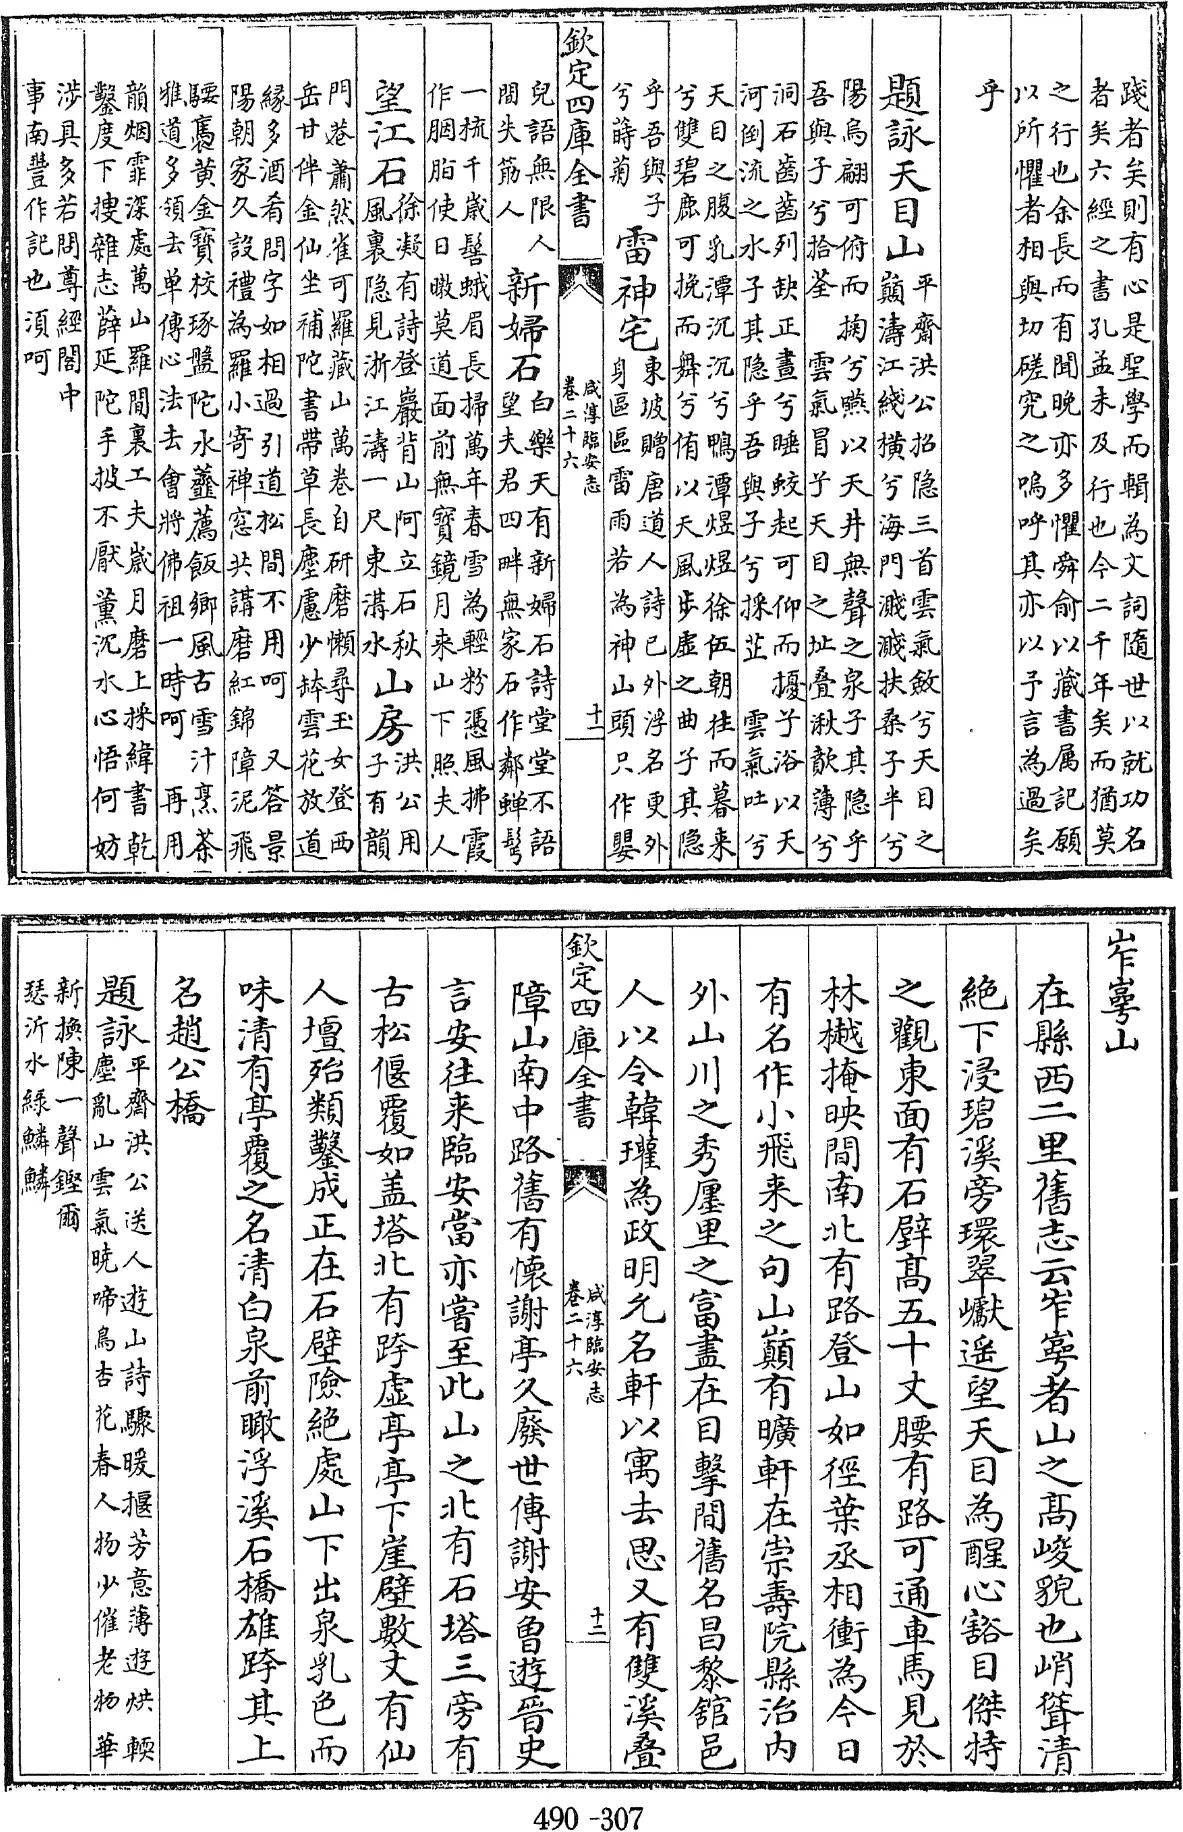 踐者矣則有心是聖學而輯為文詞隨世以就功名
者矣六經之書孔孟未及行也今二千年矣而猶莫
之行也余長而有聞晚亦多懼舜俞以藏書属記願
以所懼者相與切磋究之嗚呼其亦以予言為過矣
乎
題詠天目山平齋洪公招隐三首雲氣斂兮天目之
巔濤江綫橫兮海門濺濺扶桑子半兮
陽烏翩可俯而掬兮㷼以天井無聲之泉子其隐乎
吾與子兮拾荃　雲氣冒兮天目之址疊湫歕薄兮
洞石齒齒列缺正晝兮睡蛟起可仰而擾兮浴以天
河倒流之水子其隐乎吾與子兮採芷　雲氣吐兮
天目之腹乳潭沉沉兮鴨潭煜煜徐伍朝挂而暮来
兮雙碧鹿可挽而舞兮侑以天風步虛之曲子其隐
乎吾與子
兮蒔菊
雷神宅東坡贈唐道人詩已外浮名更外
身區區雷雨若為神山頭只作嬰
欽定四庫全書
咸淳臨安志
卷二十六
十一
兒語無限人
間失筯人
新婦石白樂天有新婦石詩堂堂不語
望夫君四畔無家石作鄰蟬髩
一梳千歲髻蛾眉長掃萬年春雪為輕粉憑風拂霞
作胭脂使日暾莫道面前無寶鏡月来山下照夫人
望江石徐凝有詩登巖背山阿立石秋
風裏隐見浙江濤一尺東溝水
山房洪公用
子有韻
門巷蕭然雀可羅藏山萬卷自研磨懶尋玉女登西
岳甘伴金仙坐補陀書帶草長塵慮少鉢雲花放道
緣多酒肴問字如相過引道松間不用呵　又答景
陽朝家久設禮為羅小寄禅窓共講磨紅錦障泥飛
騕褭黄金寳校琢盤陀水虀薦飯鄉風古雪汁烹茶
雅道多領去单傳心法去會將佛祖一時呵　再用
韻烟霏深處萬山羅間裏工夫歲月磨上採緯書乾
鑿度下捜雜志薛延陀手披不厭薰沉水心悟何妨
涉具多若問尊經閣中
事南豐作記也湏呵
岝崿山
在縣西二里舊志云岝崿者山之髙峻貌也峭聳清
絶下浸碧溪旁環翠巘遥望天目為醒心豁目傑特
之觀東面有石壁髙五十丈腰有路可通車馬見於
林樾掩映間南北有路登山如徑葉丞相衝為今日
有名作小飛来之句山巔有曠軒在崇壽院縣治内
外山川之秀廛里之富盡在目擊間舊名昌黎舘邑
人以令韓瓘為政明允名軒以寓去思又有雙溪疊
欽定四庫全書
咸淳臨安志
卷二十六
十二
障山南中路舊有懷謝亭久廢世傳謝安曽遊晉史
言安往来臨安當亦嘗至此山之北有石塔三旁有
古松偃覆如盖塔北有跨虚亭亭下崖壁數丈有仙
人壇殆類鑿成正在石壁險絶處山下出泉乳色而
味清有亭覆之名清白泉前瞰浮溪石橋雄跨其上
名趙公橋
題詠平齋洪公送人遊山詩驟暖揠芳意薄遊烘輭
塵亂山雲氣曉啼鳥杏花春人物少催老物華
新換陳一聲鏗爾
瑟沂水緑鱗鱗
490-307